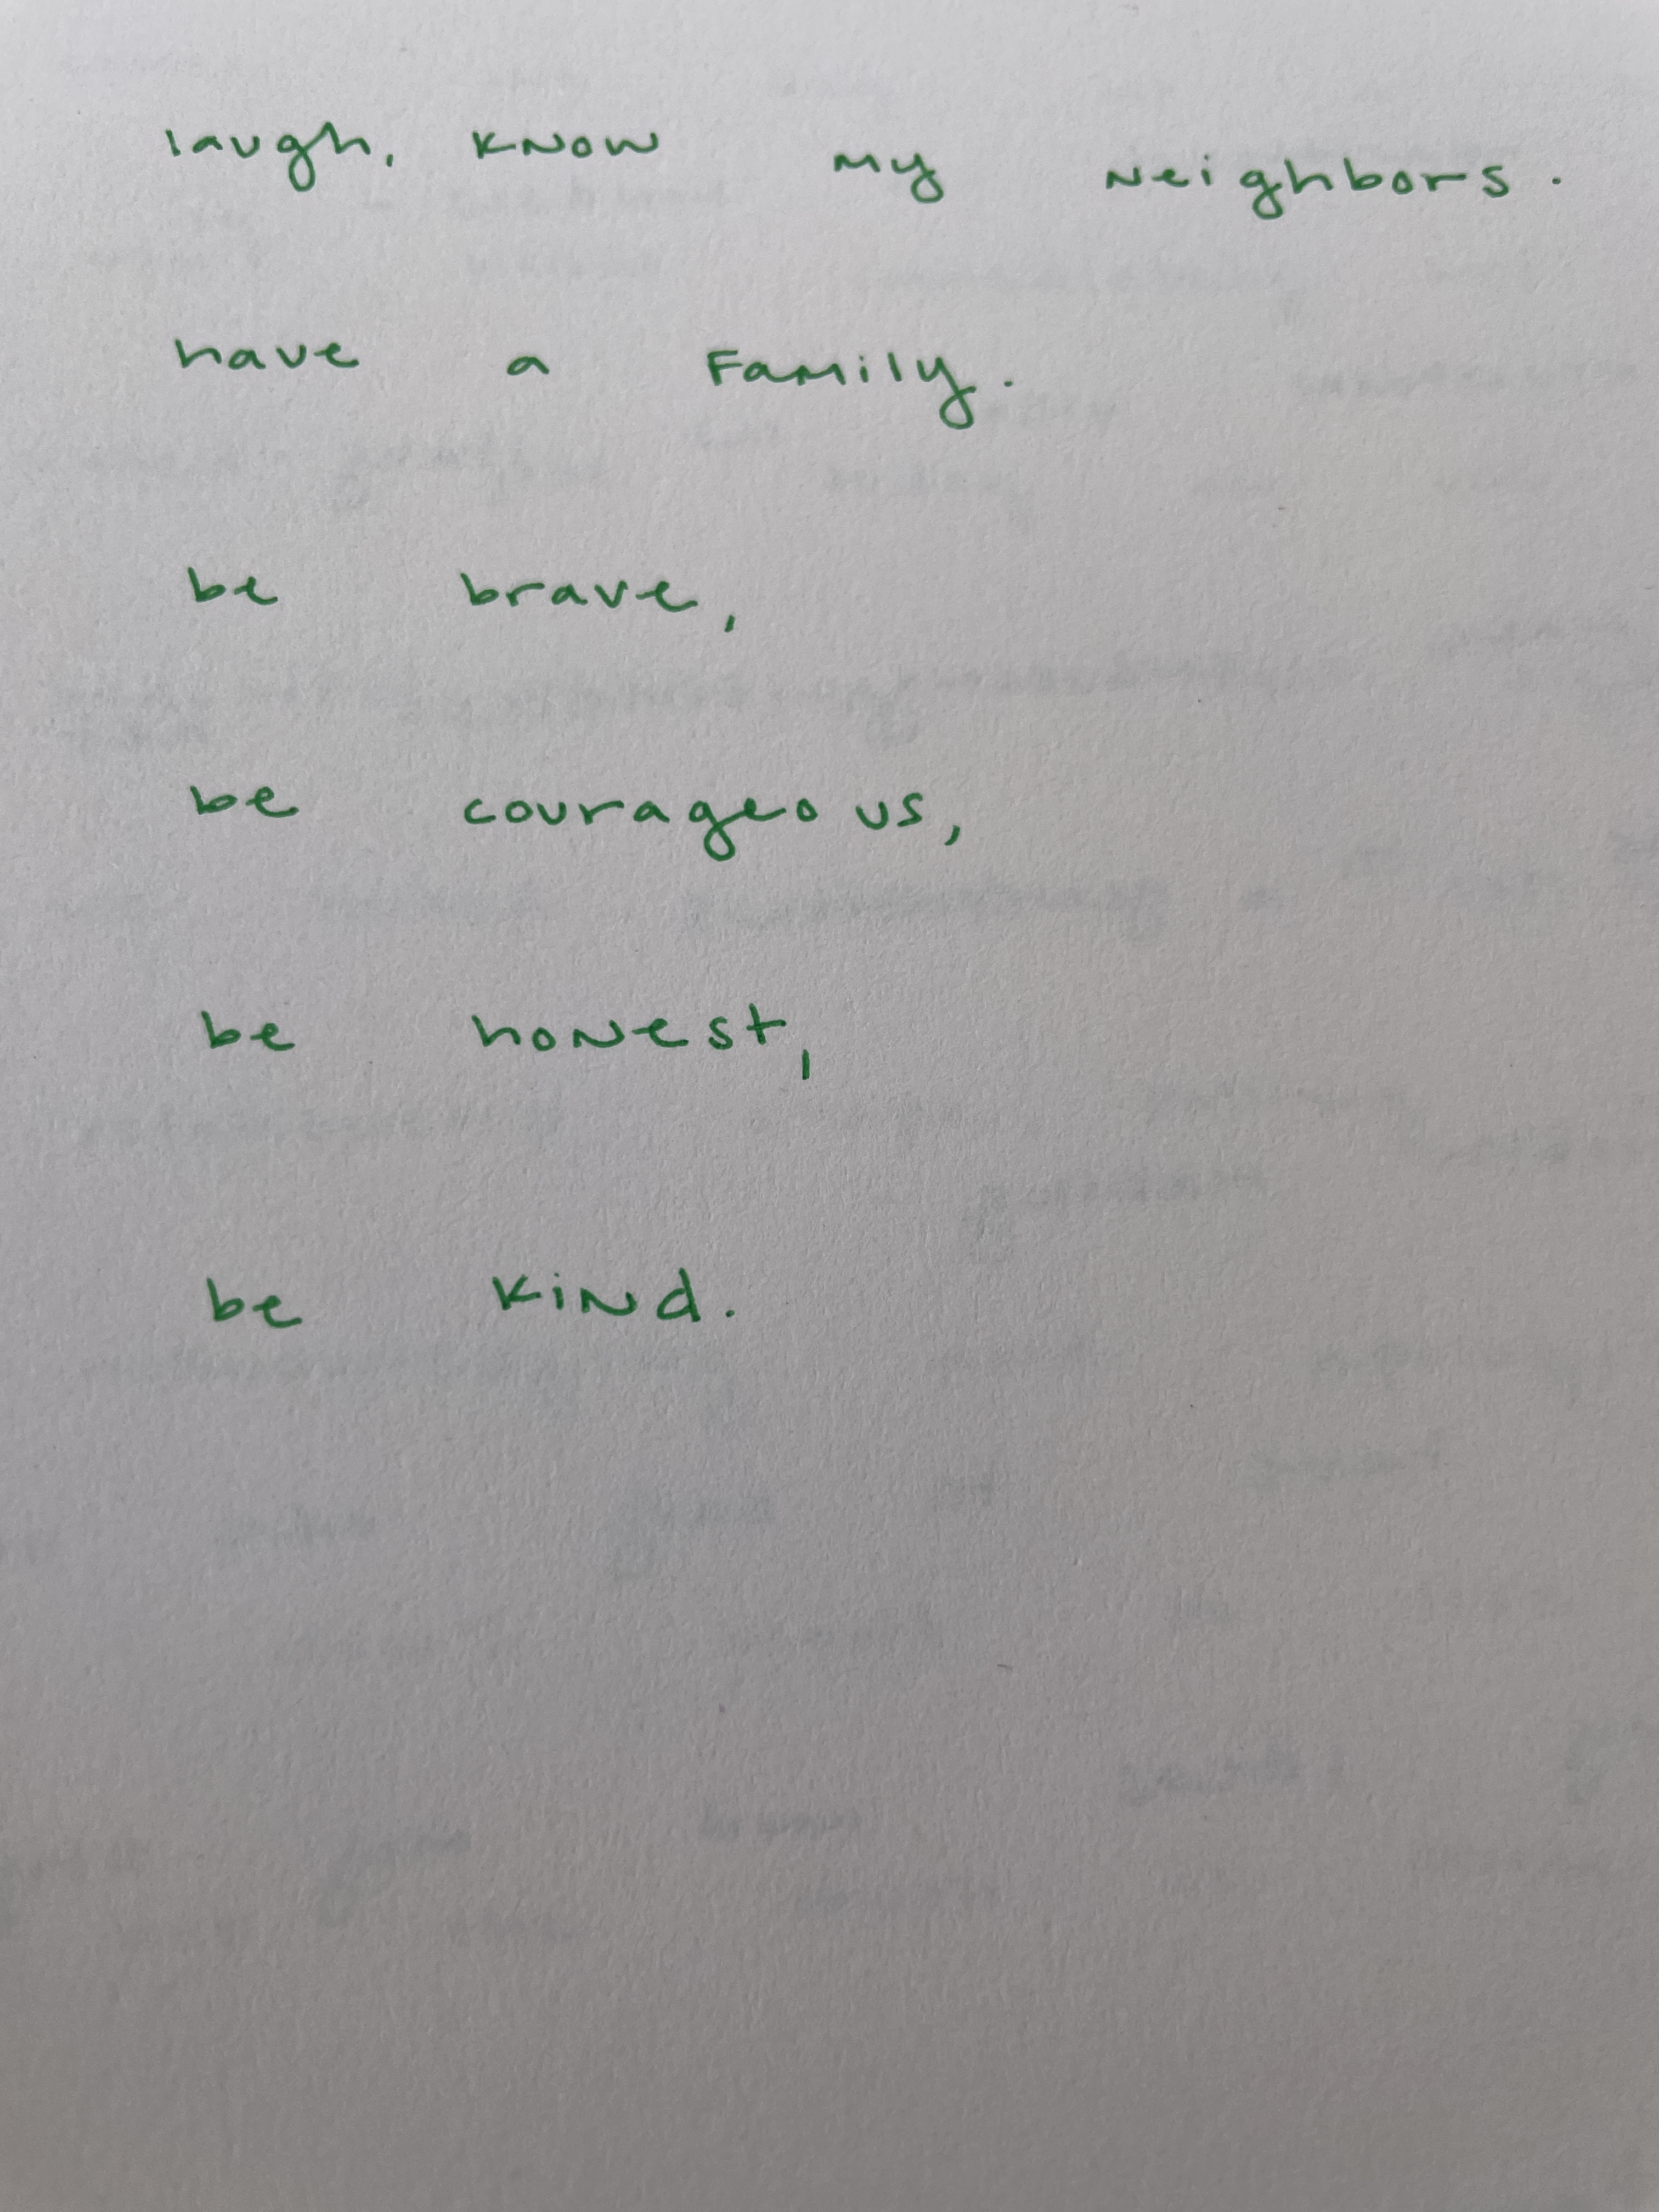 laugh, know my neighbors.
have a Family.
be brave,
be courageous,
be honest,
be kind.